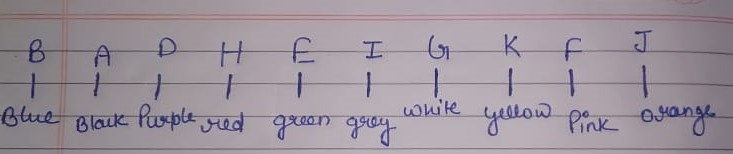 B A D H E I G K F J
Blue Black Purple red green grey white yellow Pink orange